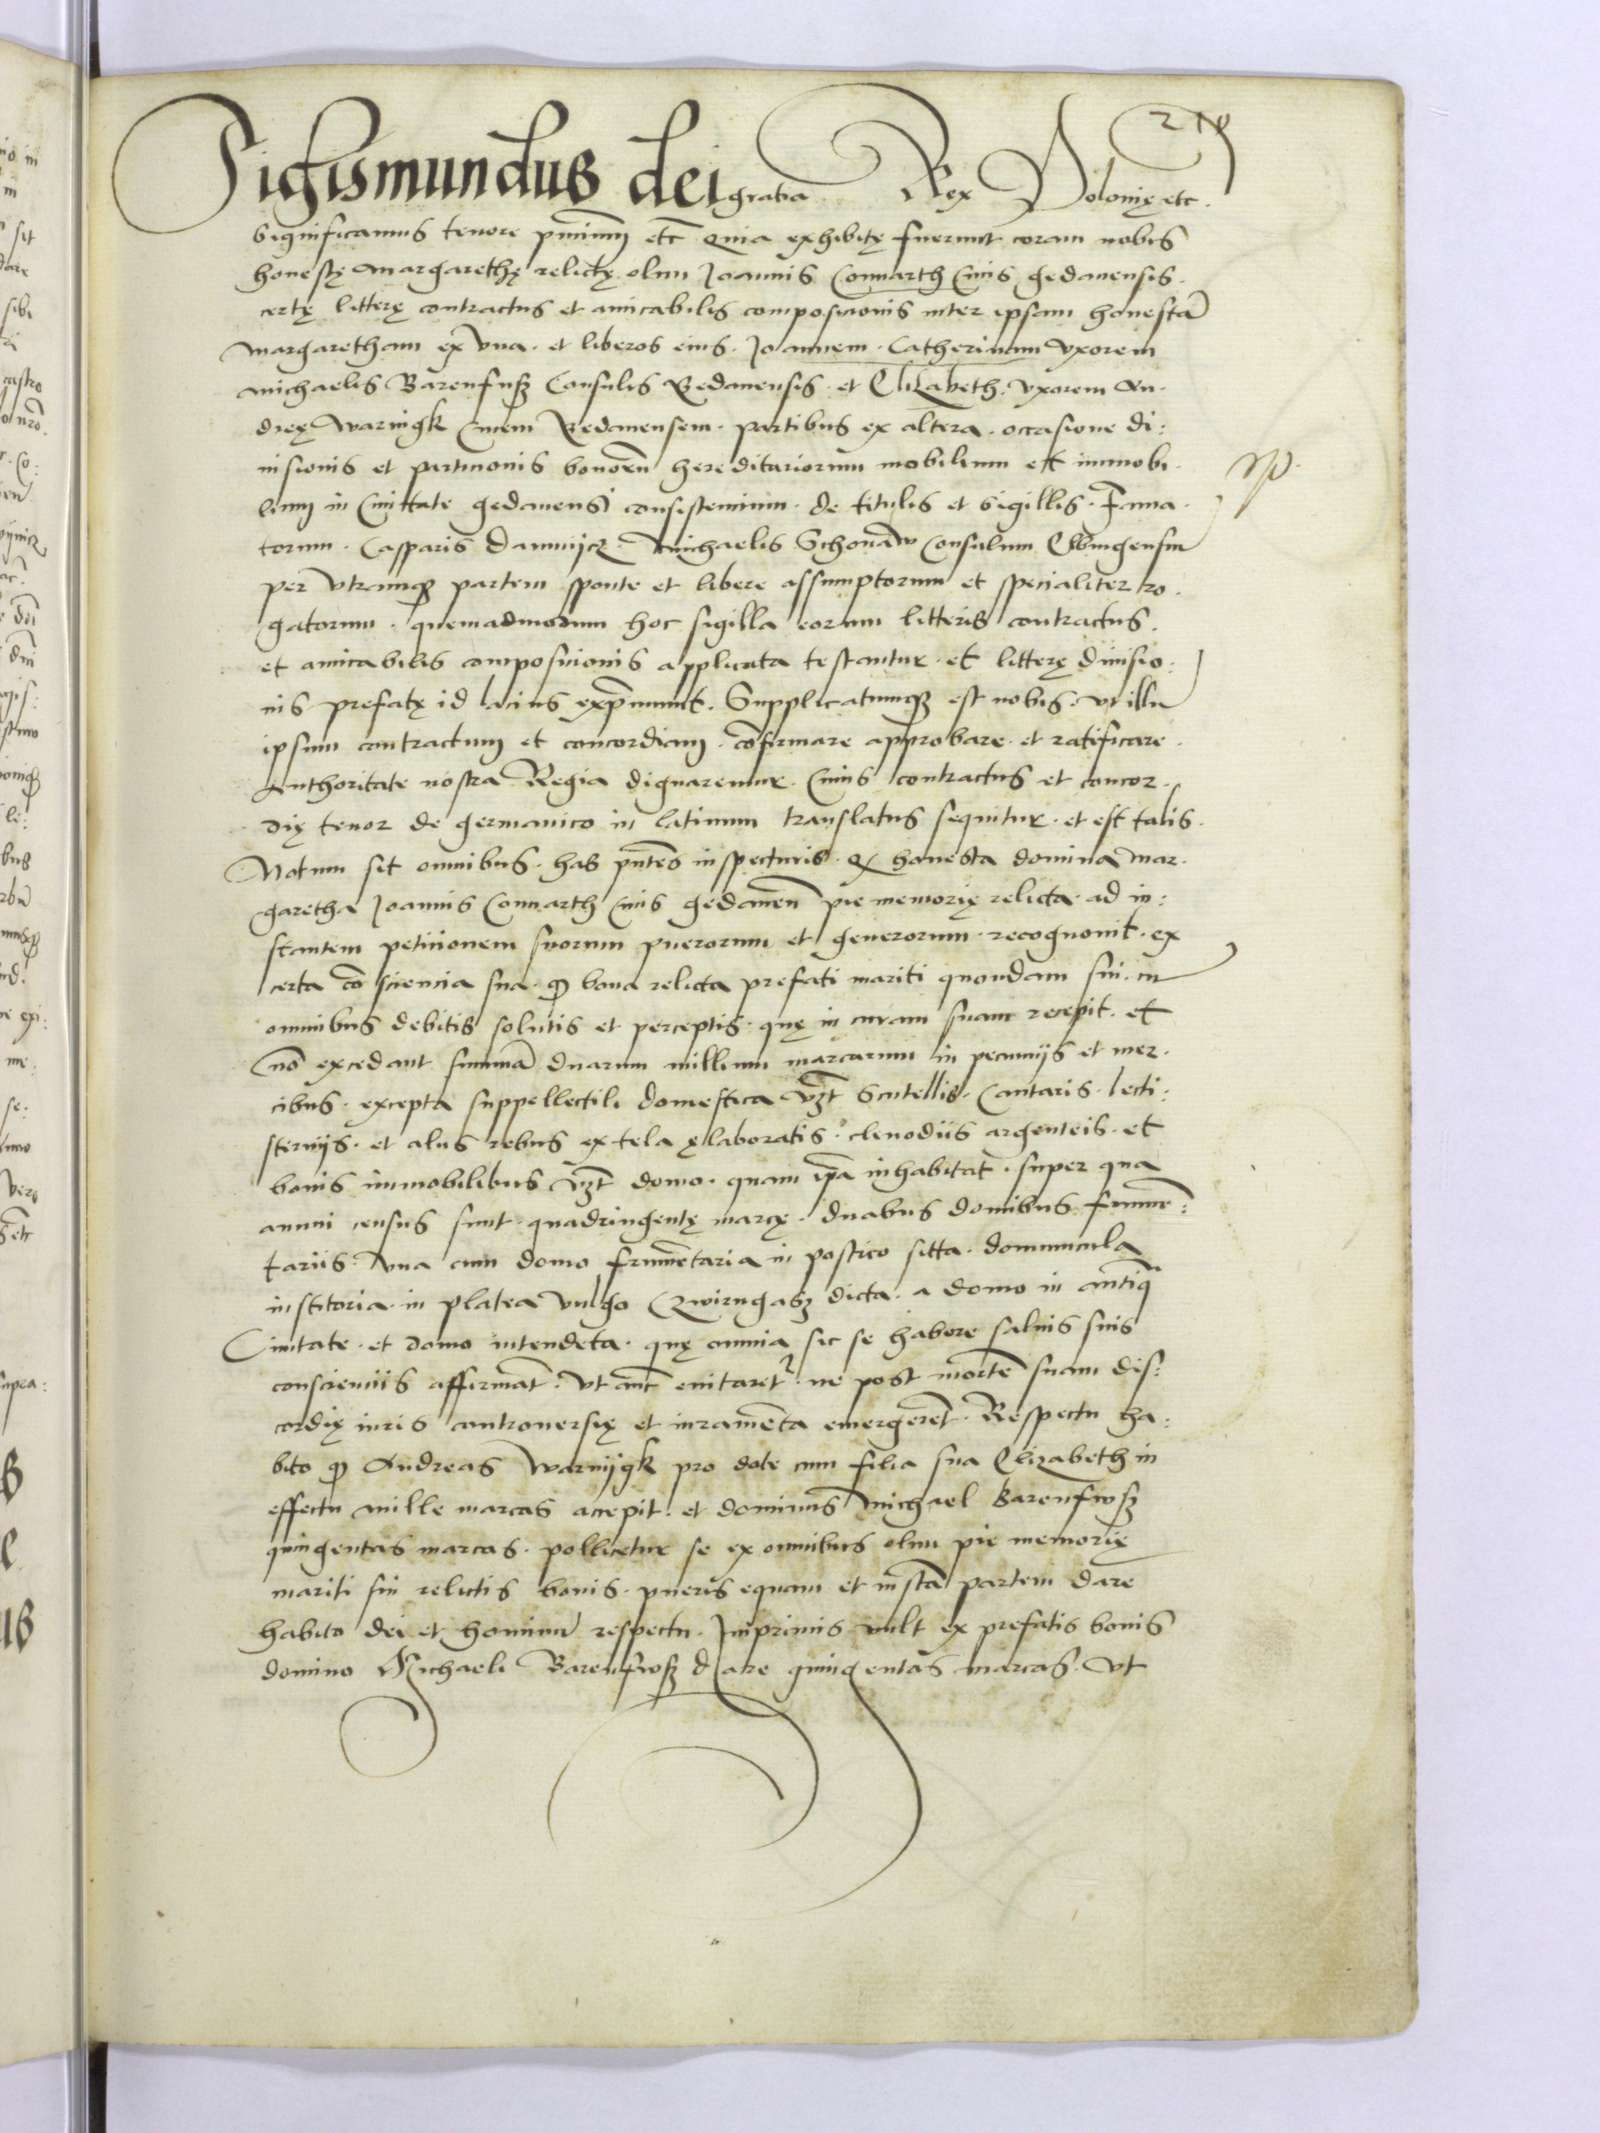 Sigismundus dei gratia Rex Polonię etc.
Significamus tenore pñtium etc̄ Quia exhibitę fuerunt coram nobis
honestę Margarethę relictę olim Joannis Connarth Ciuis gedanensis.
certę litterę contractus et amicabilis composicionis inter ipsam honestā
Margaretham ex vna. et liberos eius. Joannem. Catherinam vxorem
Michaelis Barenfusz Consulis Gedanensis. et Elizabeth. vxorem An-
dreę Warnigk Ciuem Gedanensem. partibus ex altera. occasione di:
uisionis et particionis bonorū hereditariorum mobilium et immobi-
lium in Ciuittate gedanensi consistencium. de titulis et sigillis. Fama-
torum. Casparis Michaelis Schonaw Consulum Elbingensiū
per vtramqȝ partem sponte et libere assumptorum et specialiter ro-
gatorum. quemadmodum hoc sigilla eorum litteris contractus.
et amicabilis composicionis applicata testantur. et litterę diuisio:
nis prefatę id lacius exp̄munt. Supplicatumqȝ est nobis. vt illū
ipsum contractum et concordiam. cōfirmare approbare. et ratificare.
Authoritate nostra Regia dignaremur. Cuius contractus et concor-
dię tenor de germanico in latinum translatus sequitur. et est talis.
Notum sit omnibus. has pñtes inspecturis. Q honesta domina Mar-
garetha Joannis Connarth Ciuis gedaneñ pie memorię relicta. ad in:
stantem peticionem suorum puerorum et generorum. recognouit. ex
certa cō sciencia sua. qp bona relicta prefati mariti quondam sui. in
omnibus debitis solutis et perceptis. quę in curam suam recepit. et
nō excedant summā duarum millium marcarum in pecuniis et mer-
cibus. excepta suppellectili domestica vȝt Scutellis. Cantaris. lecti:
sterniis. et aliis rebus ex tela ęlaboratis. clenodiis argenteis. et
bonis immobilibus vȝt domo. quam ip̄a inhabitat. super qua
annui census sunt quadringentę marcę. duabus domibus frumē:
tariis. vna cum domo frumētaria in postico sitta. domuncula
institoria. in platea vulgo Czwirngasz dicta. a domo in antiq̄
Ciuitate. et domo intendeta. quę omnia sic se habere saluis suis
conscienciis affirmāt. vt aūt euitaretr. ne post mortē suam dis:
cordię iuris controuersię et iuramēta emergerēt. Respectu ha:
bito qp Andreas Warnijgk pro dote cum filia sua Elizabeth in
effectu mille marcas accepit. et dominus Michael Barenfwsz
quingentas marcas. pollicetur se ex omnibus olim pie memorię
mariti sui relictis bonis. pueris equam et iustā partem dare
habito dei et hominū respectu. Inprimis vult ex prefatis bonis
domino Michaeli Barenfwsz dare quingentas marcas. vt